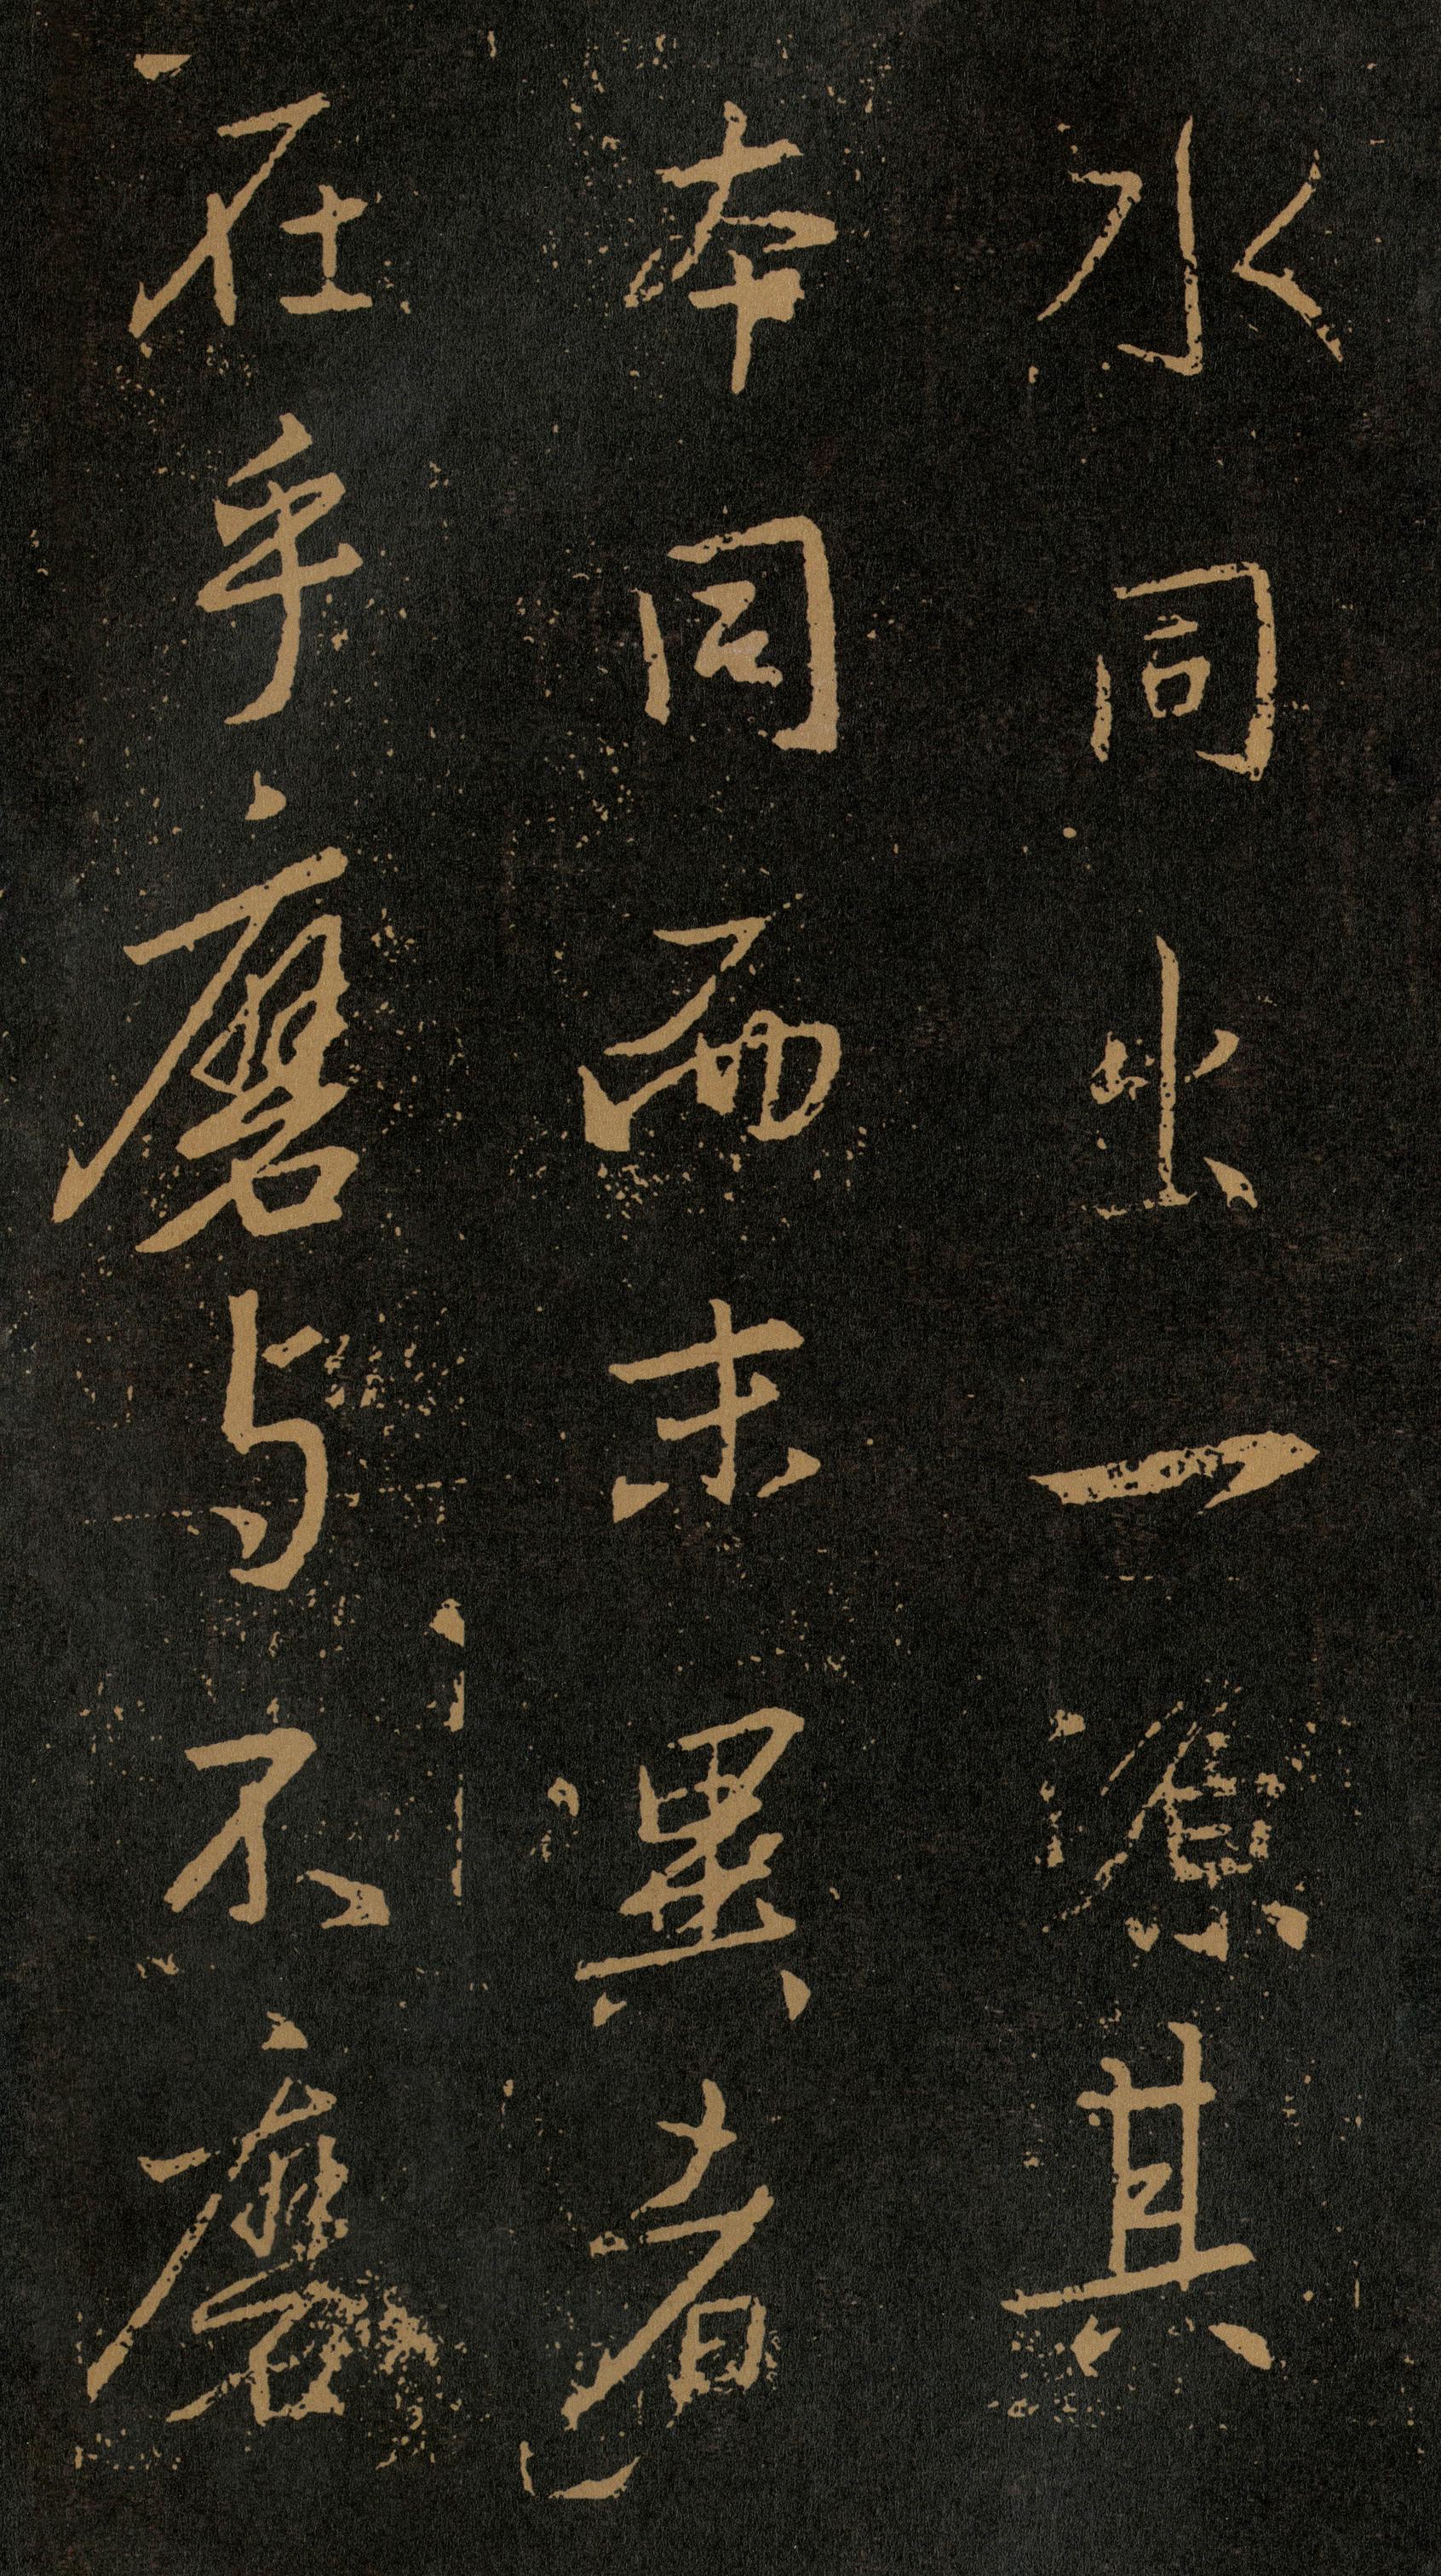 水同出一源其
本同而末異者
在乎磨与不磨